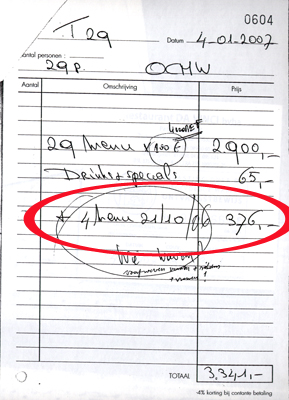 0604
T 29
Datum 4-01-2007
Aantal personen:
29 p. OCMW
Aantal Omschrijving Prijs
29 Menu x 100 € 2900,-
Drinks + specials 65,-
+ 4 Menu 21/10/06 376,-
TOTAAL 3.341,-
-4% korting bij contante betaling